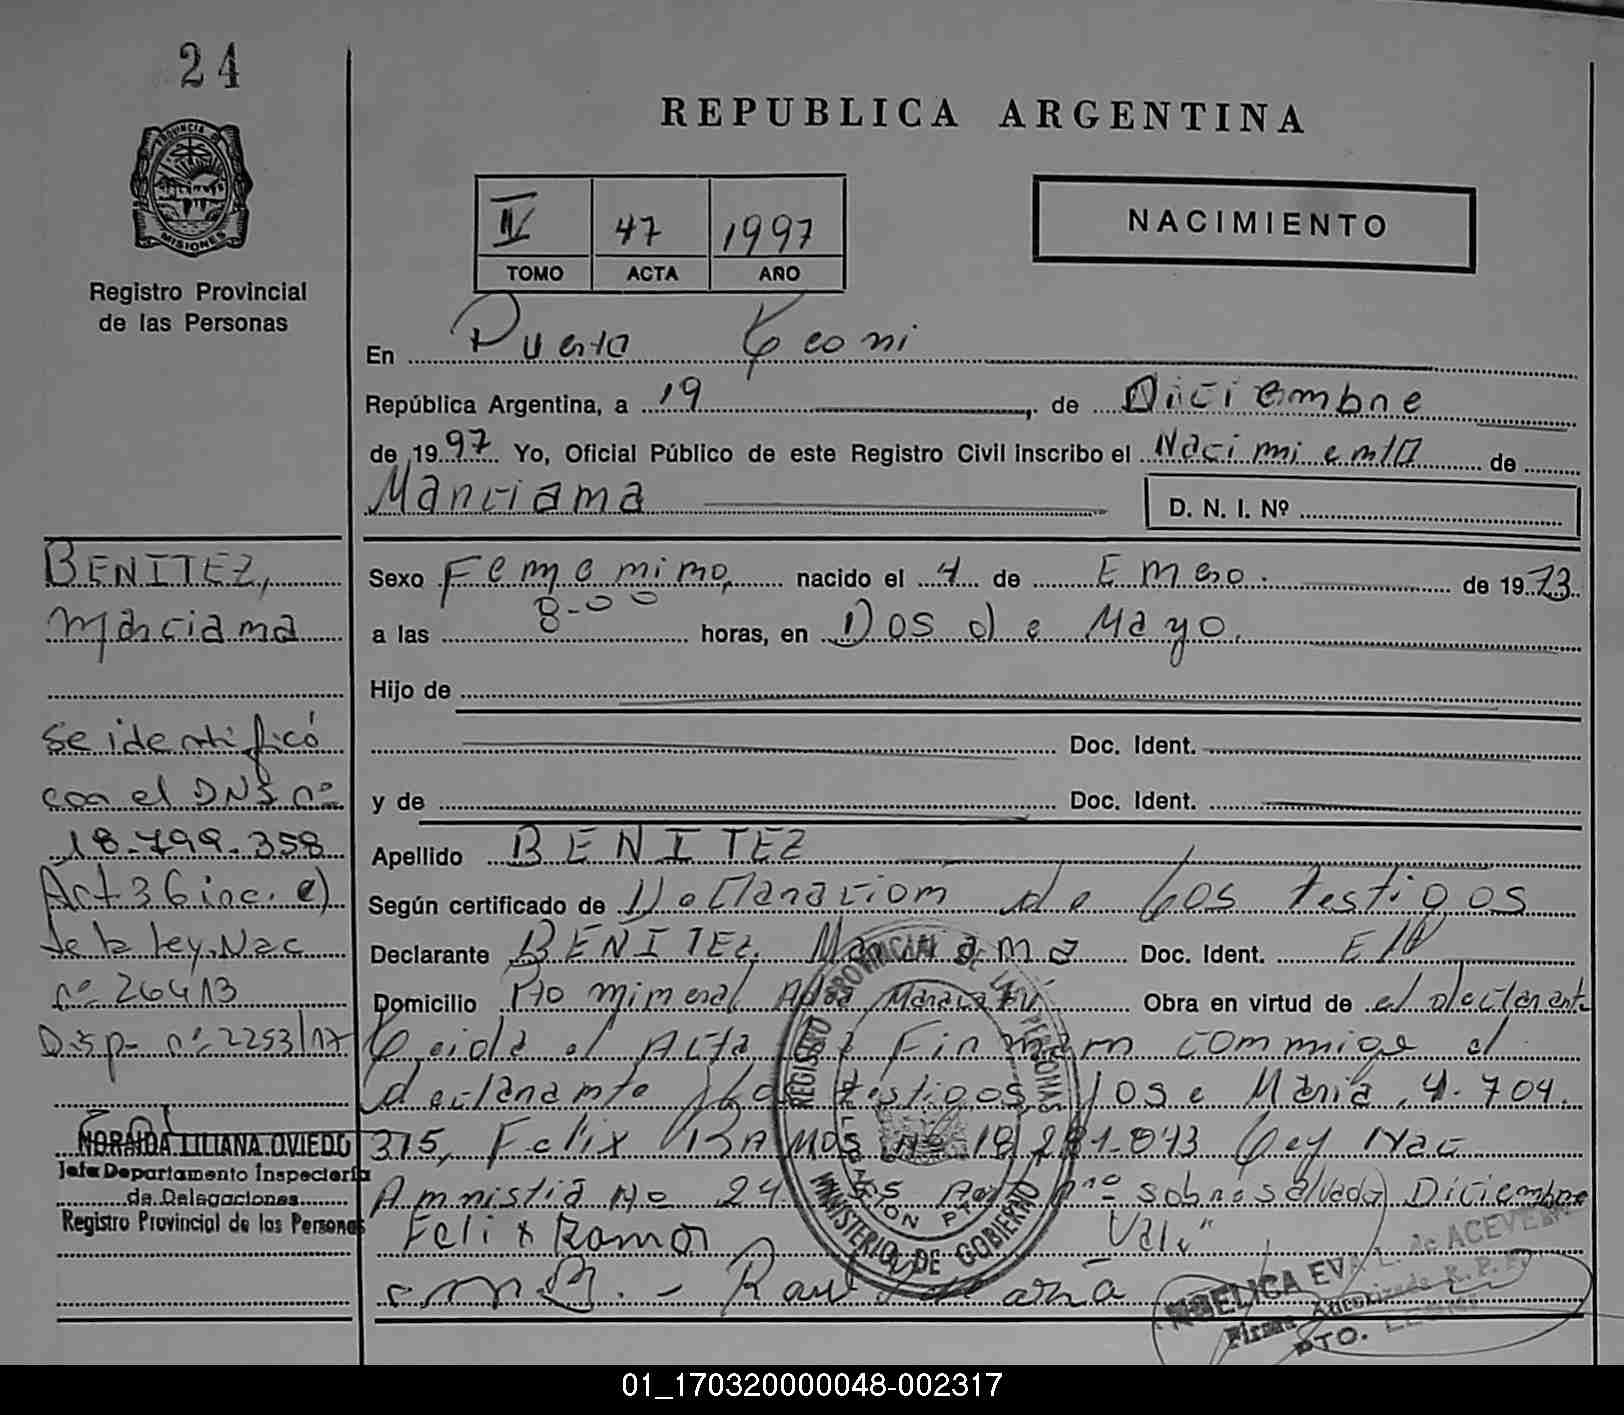 24
PROVINCIA DE
MISIONES
Registro Provincial
de las Personas
REPUBLICA ARGENTINA
IV 47 1997
TOMO ACTA AÑO
NACIMIENTO
En Puerto Leoni
República Argentina, a 19 de Diciembre
de 1997 Yo, Oficial Público de este Registro Civil inscribo el Nacimiento de
Marciana
D. N. I. Nº
Sexo Femenino, nacido el 4 de Enero. de 1973
a las 8-00 horas, en Dos de Mayo.
Hijo de
Doc. Ident.
y de Doc. Ident.
Apellido BENITEZ
Según certificado de Declaracion de los testigos
Declarante BENITEZ, Marciana Doc. Ident. E/T
Domicilio Pto mineral Obra en virtud de el declarante
Leida el Acta la Firman conmigo el
declarante y los testigos Jose Maria, 4.704.
315, Felix Ramos Nº 18 Ley Nac
Amnistia Nº 24 sobre salvado, Diciembre
Felix Ramos Vale"
Raul
BENITEZ,
Marciana
se identificó
con el DNI nº
18.799.358
Art 36 inc. e)
de la ley. Nac
nº 26413
Disp- nº 2253/17
NORAIDA LILIANA OVIEDO
Jefa Departamento Inspectoría
de Delegaciones
Registro Provincial de las Personas
REGISTRO PROVINCIAL DE LAS PERSONAS
DELEGACION PTO.
MINISTERIO DE GOBIERNO
EVA L. de ACEVEDO
Firma Autorizada R. P. P.
PTO. LEONI
01_170320000048-002317